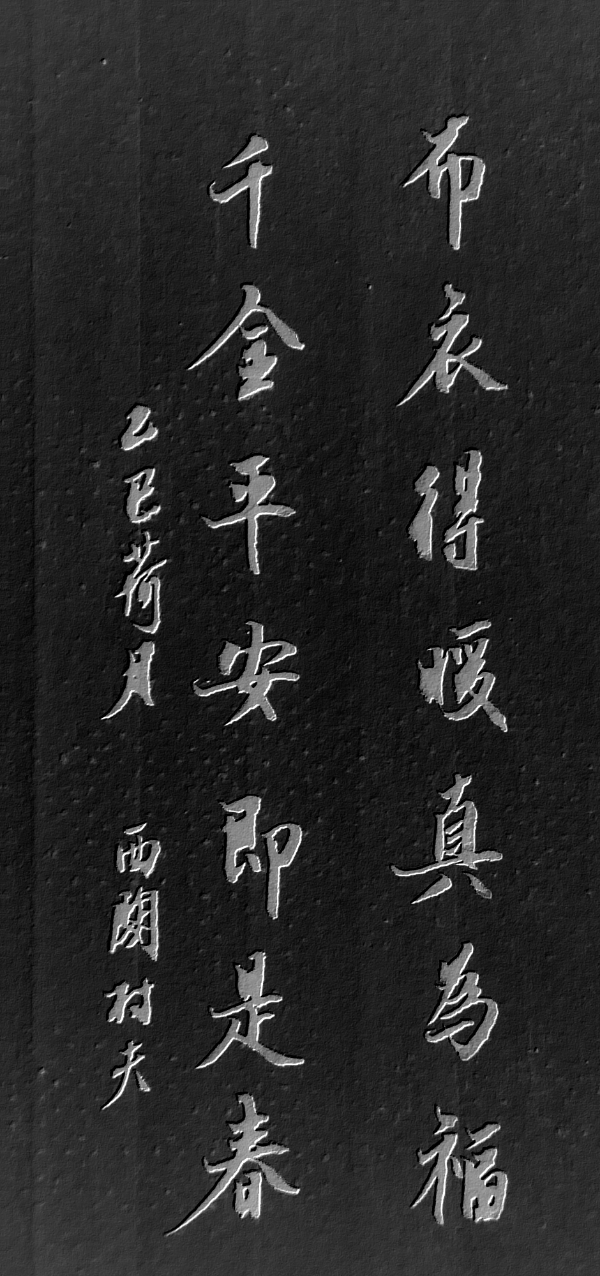 布衣得暖真為福
千金平安即是春
乙巳荷月 西蘭村夫